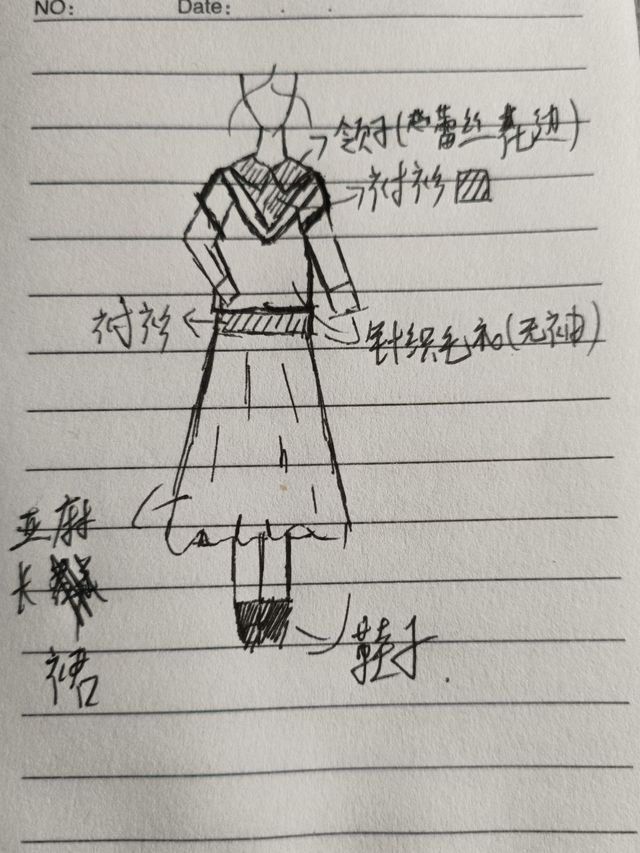 NO:
Date:
领子(蕾丝花边)
衬衫
衬衫
针织毛衣(无袖)
亚麻
长
裙
鞋子